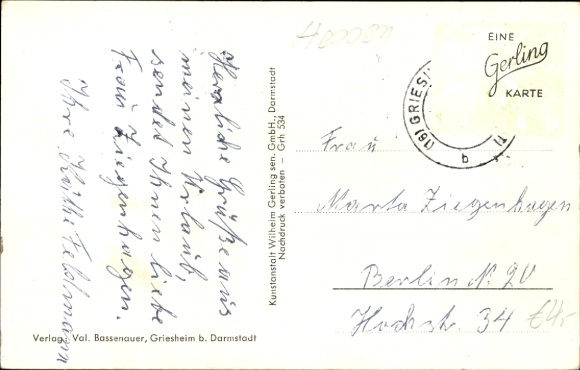 Hessen
EINE
Gerling
KARTE
(16) GRIES
b
Herzliche Grüße aus
meinem Urlaub,
sendet Ihnen liebe
Frau Ziegenhagen.
Ihre Käthi Feldmann
Kunstanstalt Wilhelm Gerling sen. GmbH., Darmstadt
Nachdruck verboten – Grh 534
Frau
Marta Ziegenhagen
Berlin N. 20
Hochstr. 34
€4,-
Verlag: Val. Bassenauer, Griesheim b. Darmstadt